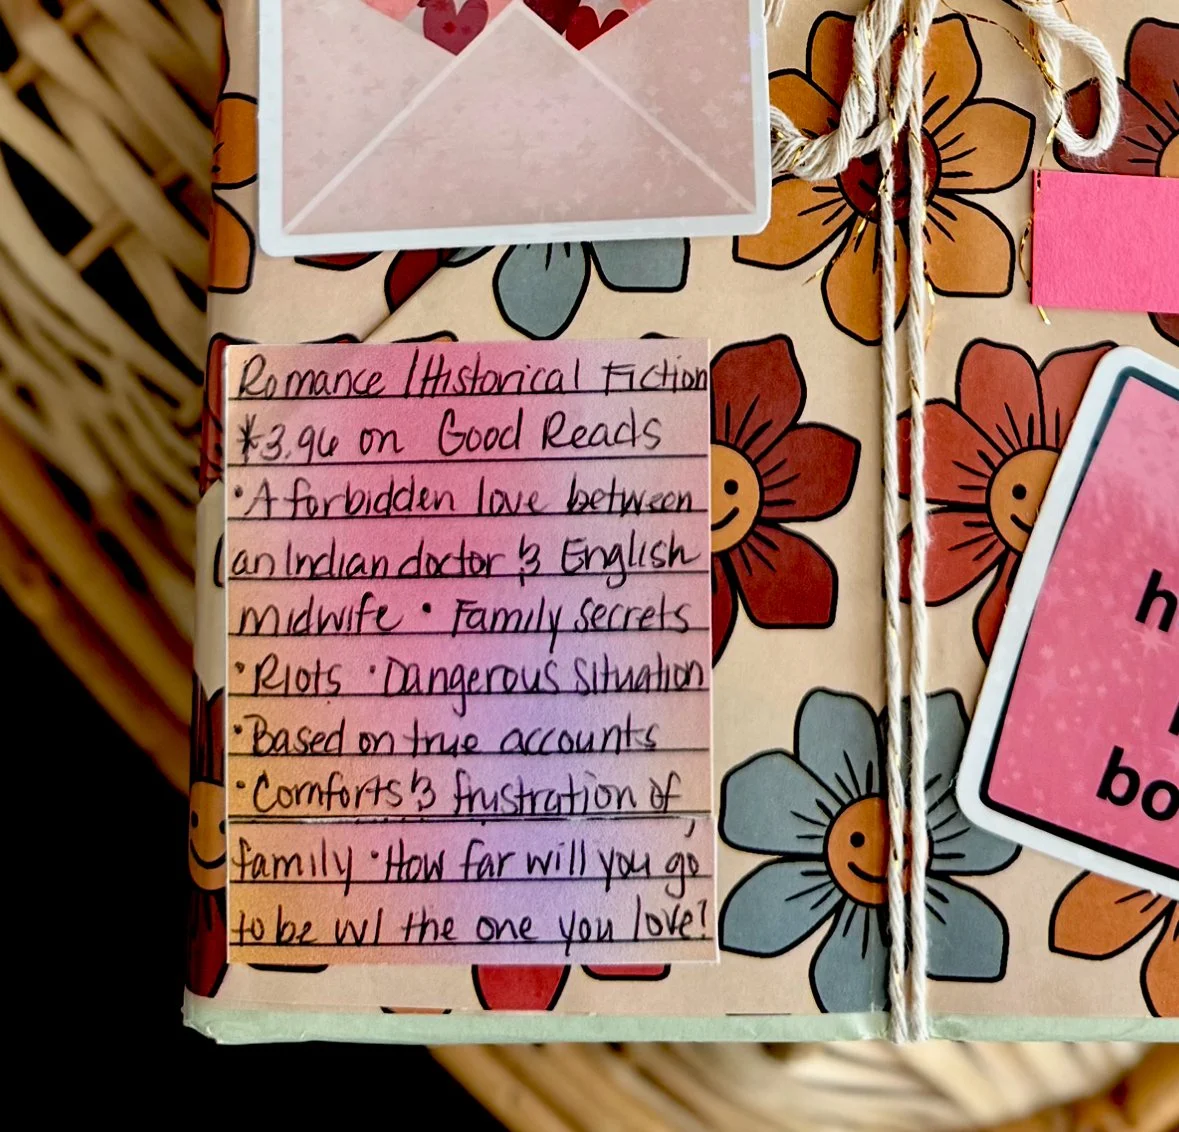 Romance / Historical Fiction
*3.96 on Good Reads
• A forbidden love between
an Indian doctor & English
midwife • Family secrets
• Riots • Dangerous situation
• Based on true accounts
• Comforts & frustration of
family • How far will you go
to be w/ the one you love?
h
bo